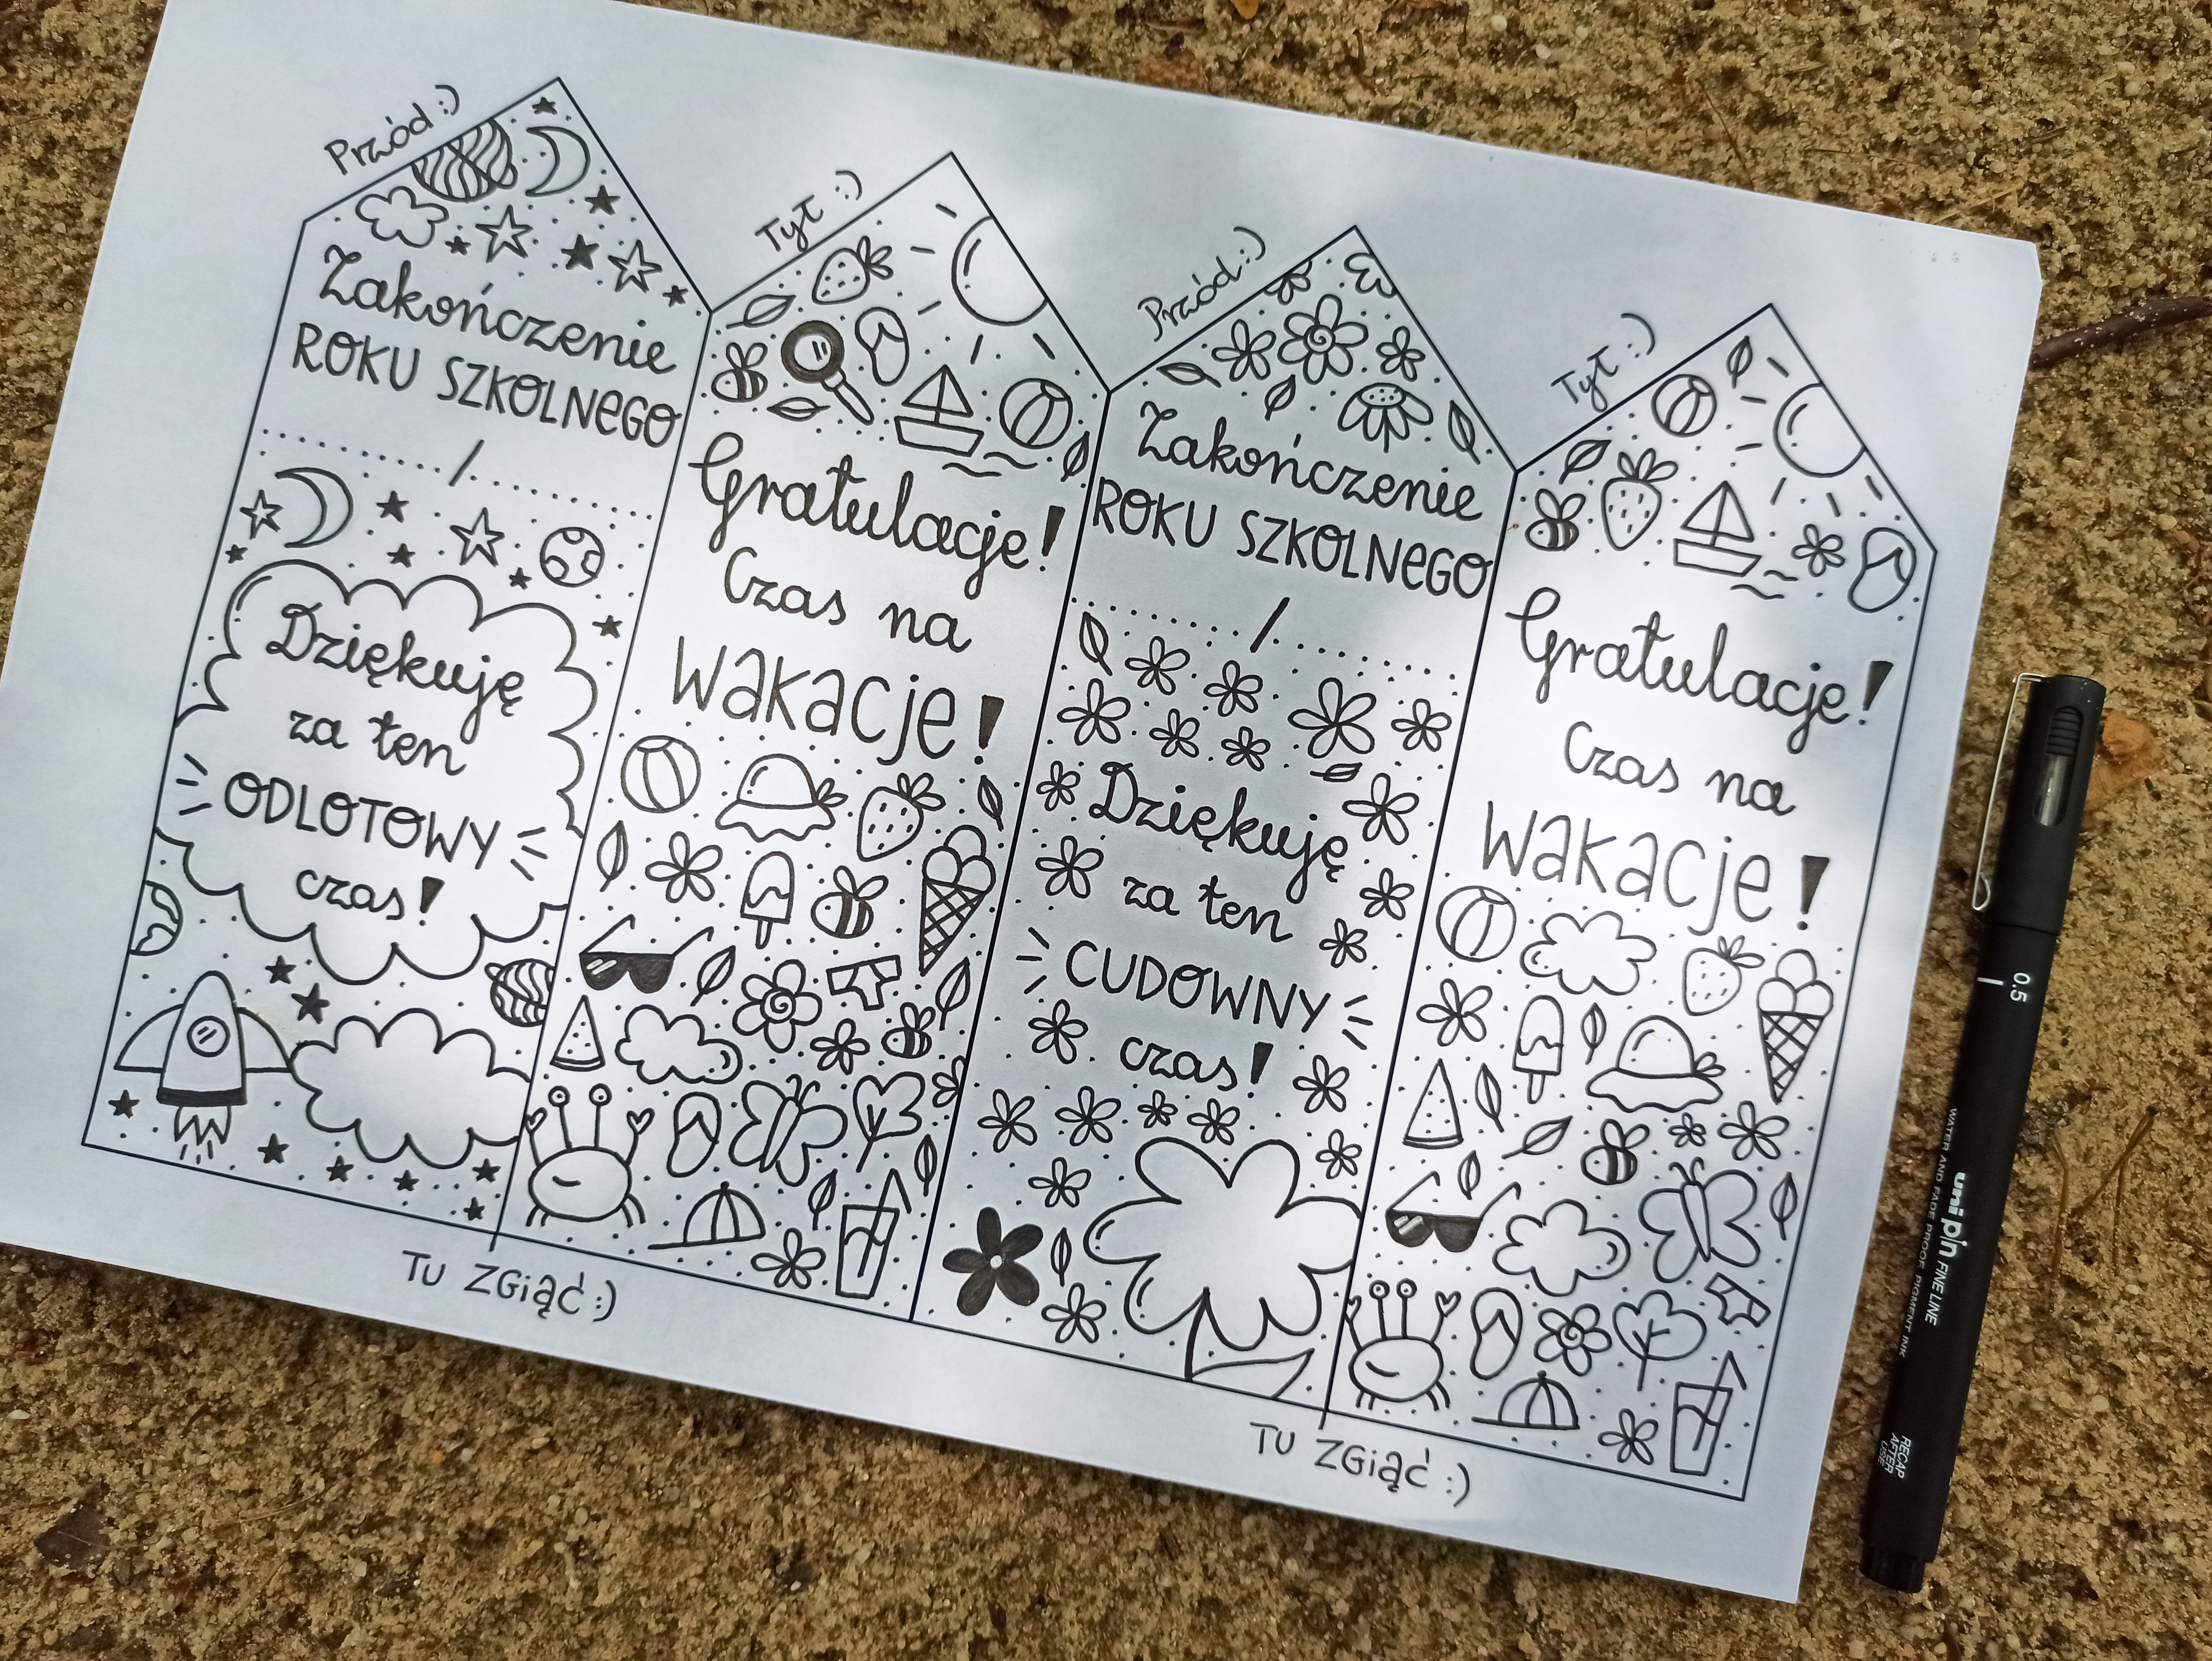 Przód :)
Zakończenie
ROKU SZKOLNEGO
........./.........
Dziękuję
za ten
ODLOTOWY
czas!
Tył :)
Gratulacje!
Czas na
wakacje!
Tu zgiąć :)
Przód :)
Zakończenie
ROKU SZKOLNEGO
........./.........
Dziękuję
za ten
CUDOWNY
czas!
Tył :)
Gratulacje!
Czas na
wakacje!
Tu zgiąć :)
0.5
uni pin FINE LINE
WATER AND FADE PROOF, PIGMENT INK
RECAP
AFTER
USE